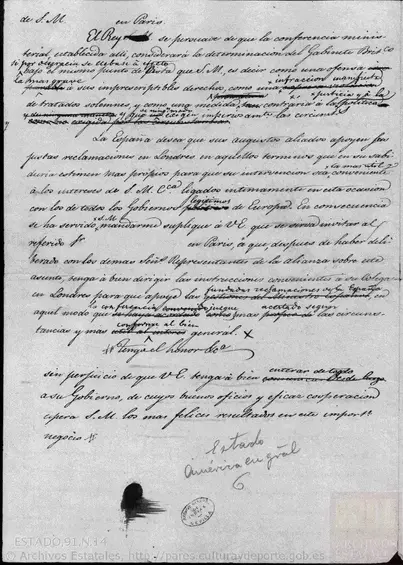 de S. M. en Paris.
El Rey se persuade de que la conferencia minis-
terial, establecida alli, considerará la determinacion del Gabinete Britco
si por desgracia se llebase á efecto
bajo el mismo punto de vista que S. M., es decir como una ofensa
la mas grave infraccion manifiesta
á sus imprescriptibles derechos, como una
de tratados solemnes, y como una medida, tan contraria á la politica
las circuns
La España desea que sus augustos aliados apoyen sus
justas reclamaciones en Londres en aquellos terminos que en su sabi-
duria estimen mas propios para que su intervencion sea conveniente
á los intereses de S. M. Cca ligados intimamente en esta ocasion
legitimos
con los de todos los Gobiernos de Europa. En consecuencia
S. M.
se ha servido mandarme suplique á V. E. que se sirva invitar al
referido Sr en Paris, á que despues de haber deli-
berado con los demas Sres Representantes de la alianza sobre este
asunto, tenga á bien dirigir las instrucciones convenientes á su Colega
fundadas reclamaciones de la España
en Londres para que apoye las gestiones del Ministro Español en
la conferencia juzgue acertado segun
aquel modo que las circuns-
conforme al bien
tancias y mas util al interes general. X
Tenga el honor &ca
enterar de todo
sin perjuicio de que V. E. tenga á bien
a su Gobierno, de cuyos buenos oficios y eficaz cooperacion
espera S. M. los mas felices resultados en este importe
negocio.
Estado
América en gral
6
ESTADO,91,N.14
© Archivos Estatales, http://pares.culturaydeporte.gob.es